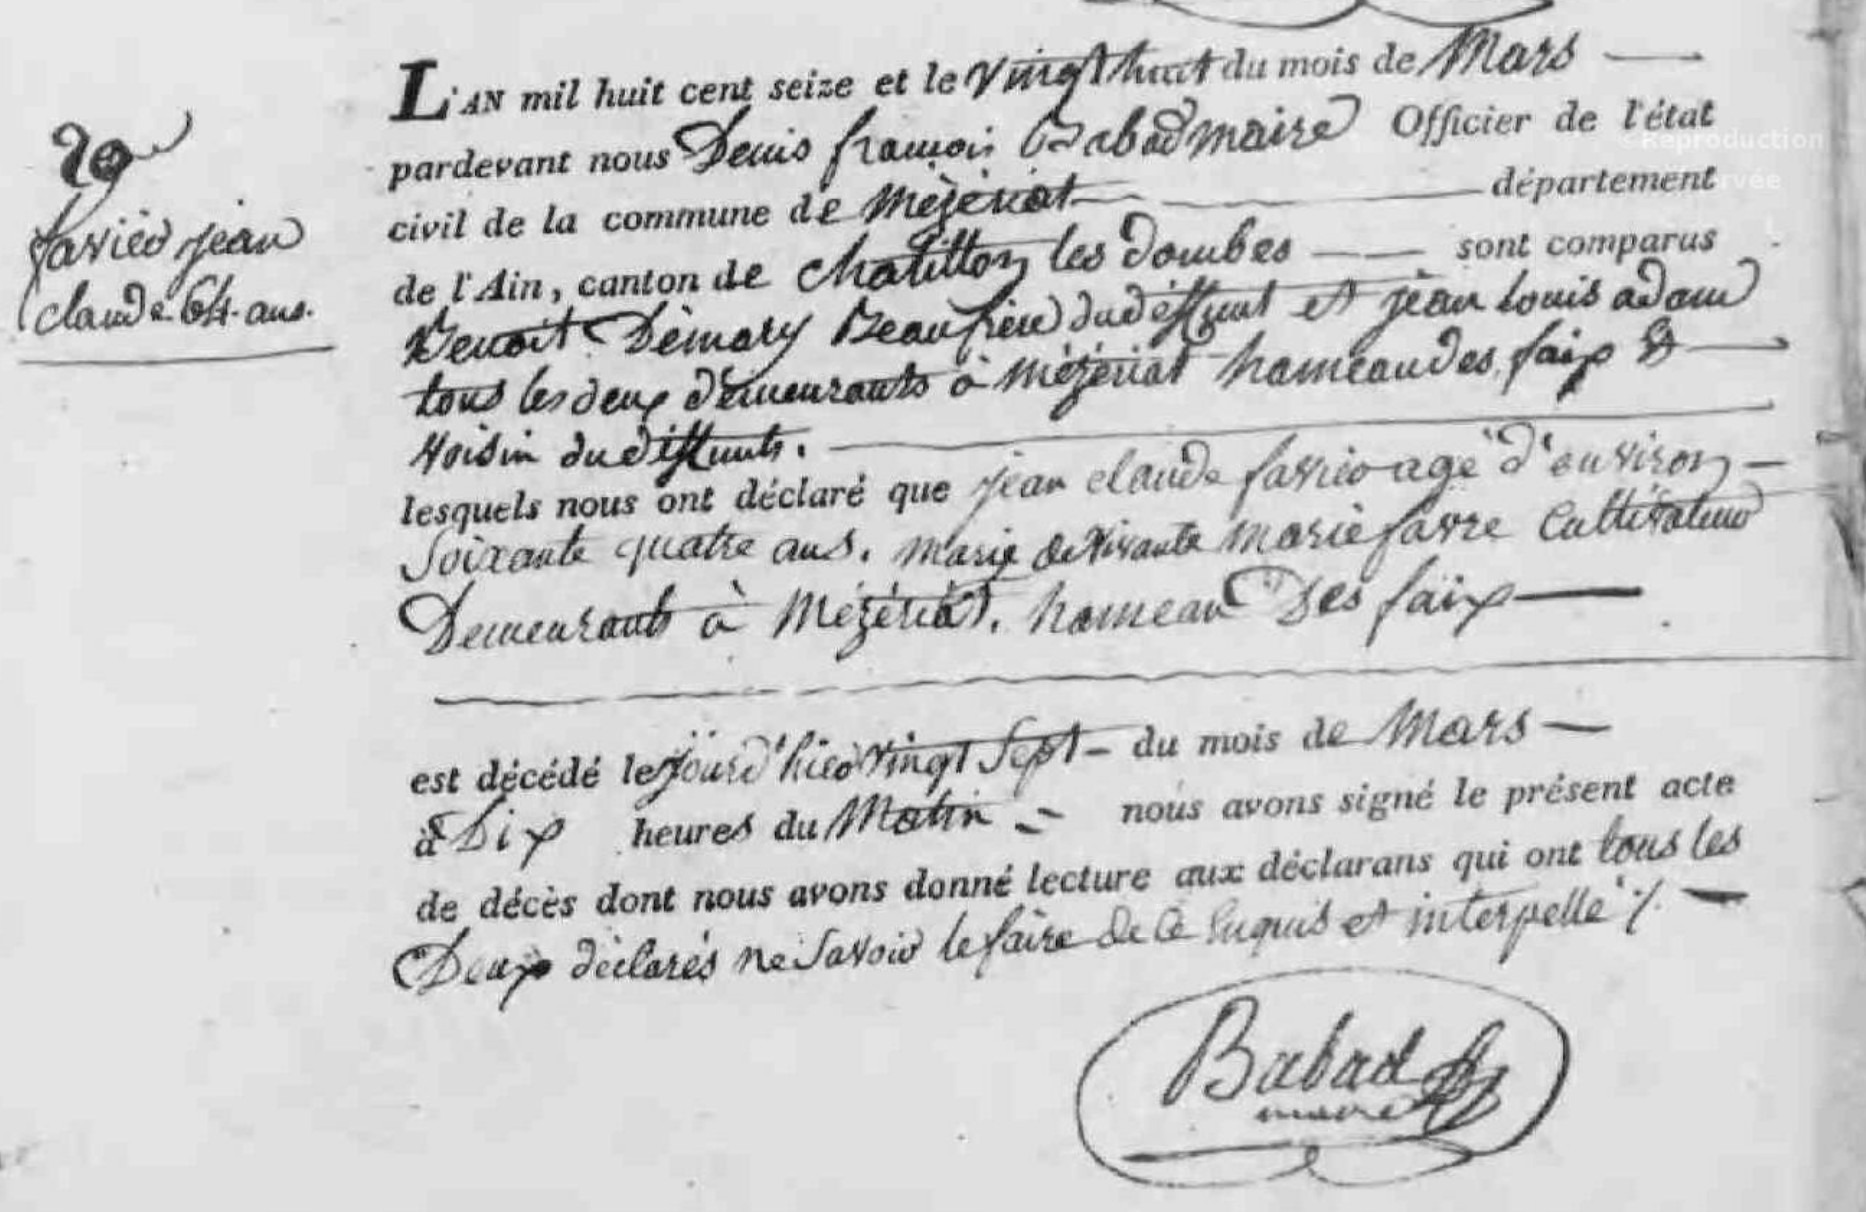 L'AN mil huit cent seize et le vingt huit du mois de Mars
pardevant nous Denis françois Babad maire Officier de l'état
civil de la commune de Mézériat département
de l'Ain, canton de chatillon les dombes sont comparus
Benoit Démary Beaufrère du déffunt et jean louis adam
tous les deux demeurants à mézériat hameau des faix &
voisin du déffunts.
lesquels nous ont déclaré que jean claude favier agé d'environ
Soixante quatre ans. marié de vivante marie favre Cultivateur
Demeurants à Mézériat. hameau Des faix
est décédé le jourd'hier vingt Sept du mois de Mars
à Dix heures du Matin nous avons signé le présent acte
de décès dont nous avons donné lecture aux déclarans qui ont tous les
Deux déclarés ne Savoir le faire de ce Enquis et interpellé
20
favier jean
claude 64. ans.
Babad
maire
© Reproduction